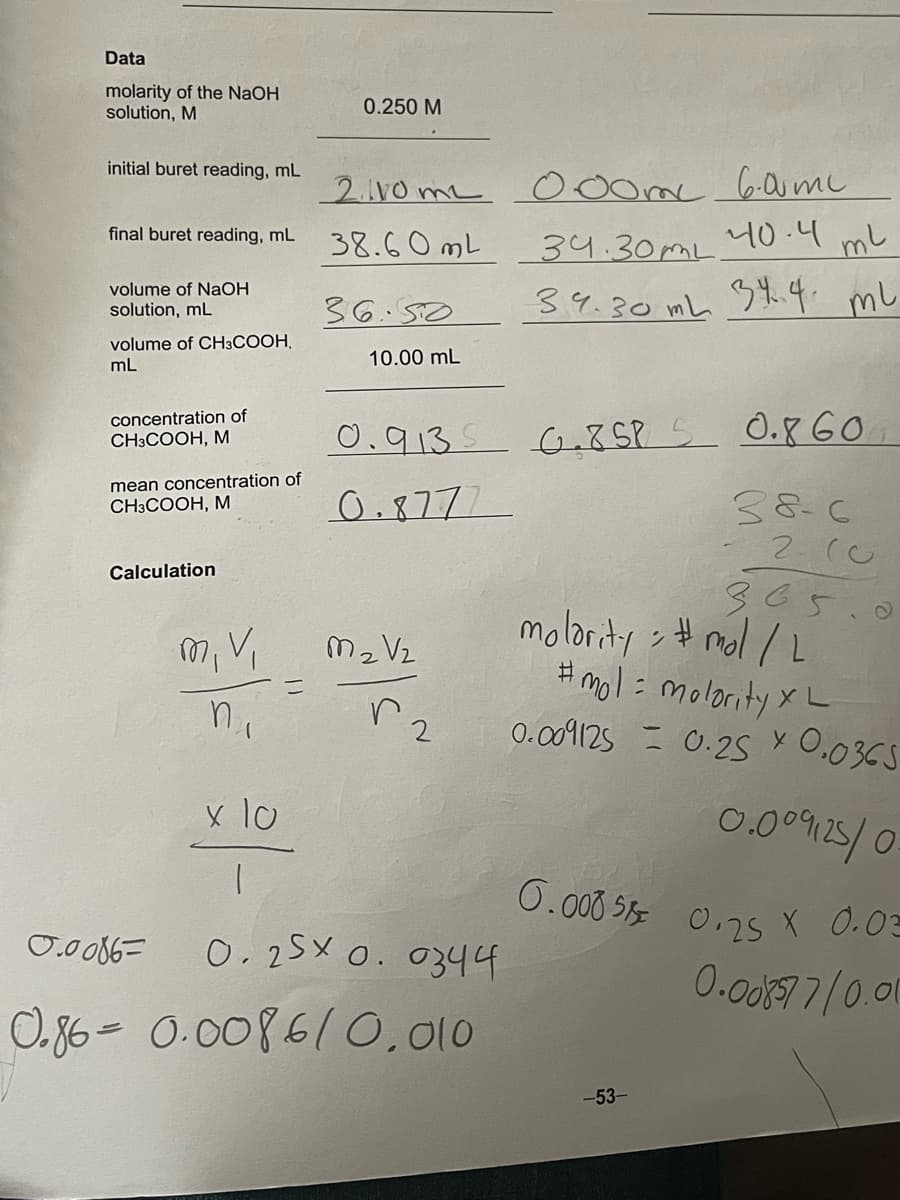 Data
molarity of the NaOH
solution, M
0.250 M
initial buret reading, mL
0.00 mL
final buret reading, mL
38.60 mL 34.30 mL 40.4 mL
volume of NaOH
solution, mL
36.50 34.30 mL 34.4 mL
volume of CH3COOH,
mL
10.00 mL
concentration of
CH3COOH, M
0.913 5 0.858 5 0.860
mean concentration of
CH3COOH, M
0.8777
38.6
- 2.10
365.0
Calculation
m₁V₁ / n₁ = m₂V₂ / n₂
molarity = # mol / L
# mol = molarity x L
0.009125 = 0.25 x 0.0365
x 10 / 1
0.009125/0.
0.25 x 0.03
0.0086= 0.25x0.0344
0.008577/0.01
0.86= 0.0086/0.010
-53-